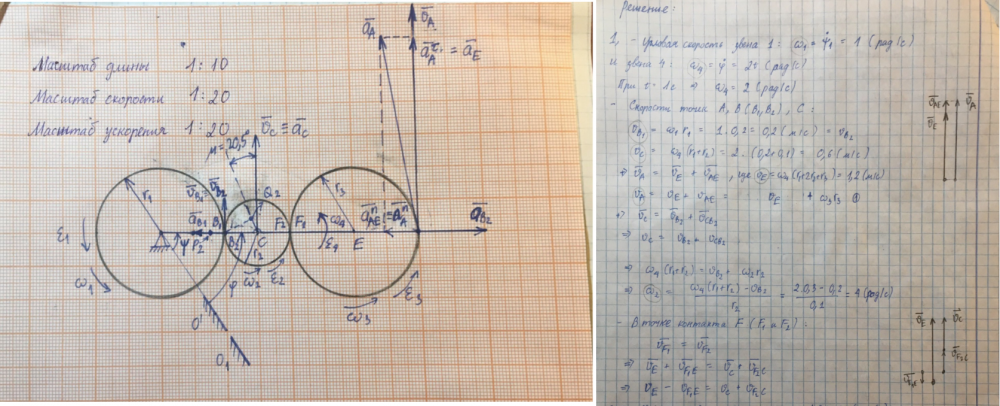 Масштаб длины 1:10
Масштаб скорости 1:20
Масштаб ускорения 1:20
a̅A
v̅A
a̅τA = a̅E
v̅C ≡ a̅C
μ=20,5°
r1
B1
Q2
r3
a̅B1
P2
ψ
B2
C
F2
F1
ω4
ε4
E
a̅B2
r2
ε1
ω1
ω2
ε2
φ
ω3
ε3
O'
O1
Решение:
1, - Угловая скорость звена 1: ω1 = ψ̇1 = 1 (рад/с)
и звена 4: ω4 = φ̇ = 2t (рад/с)
При t = 1c ⇒ ω4 = 2 (рад/с)
- Скорости точек A, B (B1, B2), C:
v̅B1 = ω1 r1 = 1 · 0,2 = 0,2 (м/с) = vB2
v̅C = ω4 (r1+r2) = 2 · (0,2+0,1) = 0,6 (м/с)
⇒ v̅A = v̅E + v̅AE, где v̅E = ω4(r1+2r2+r3) = 1,2 (м/с)
v̅A = vE + vAE = vE + ω3r3
⇒ v̅C = v̅B2 + v̅CB2
⇒ vC = vB2 + vCB2
⇒ ω4 (r1+r2) = vB2 + ω2r2
⇒ ω2 = ω4(r1+r2) - vB2 / r2 = 2·0,3 - 0,2 / 0,1 = 4 (рад/с)
- В точке контакта F (F1 и F2):
v̅F1 = v̅F2
⇒ v̅E + v̅F1E = v̅C + v̅F2C
⇒ vE - vF1E = vC + vF2C
v̅AE v̅A
v̅E
v̅E v̅C
v̅F2C
v̅F1E